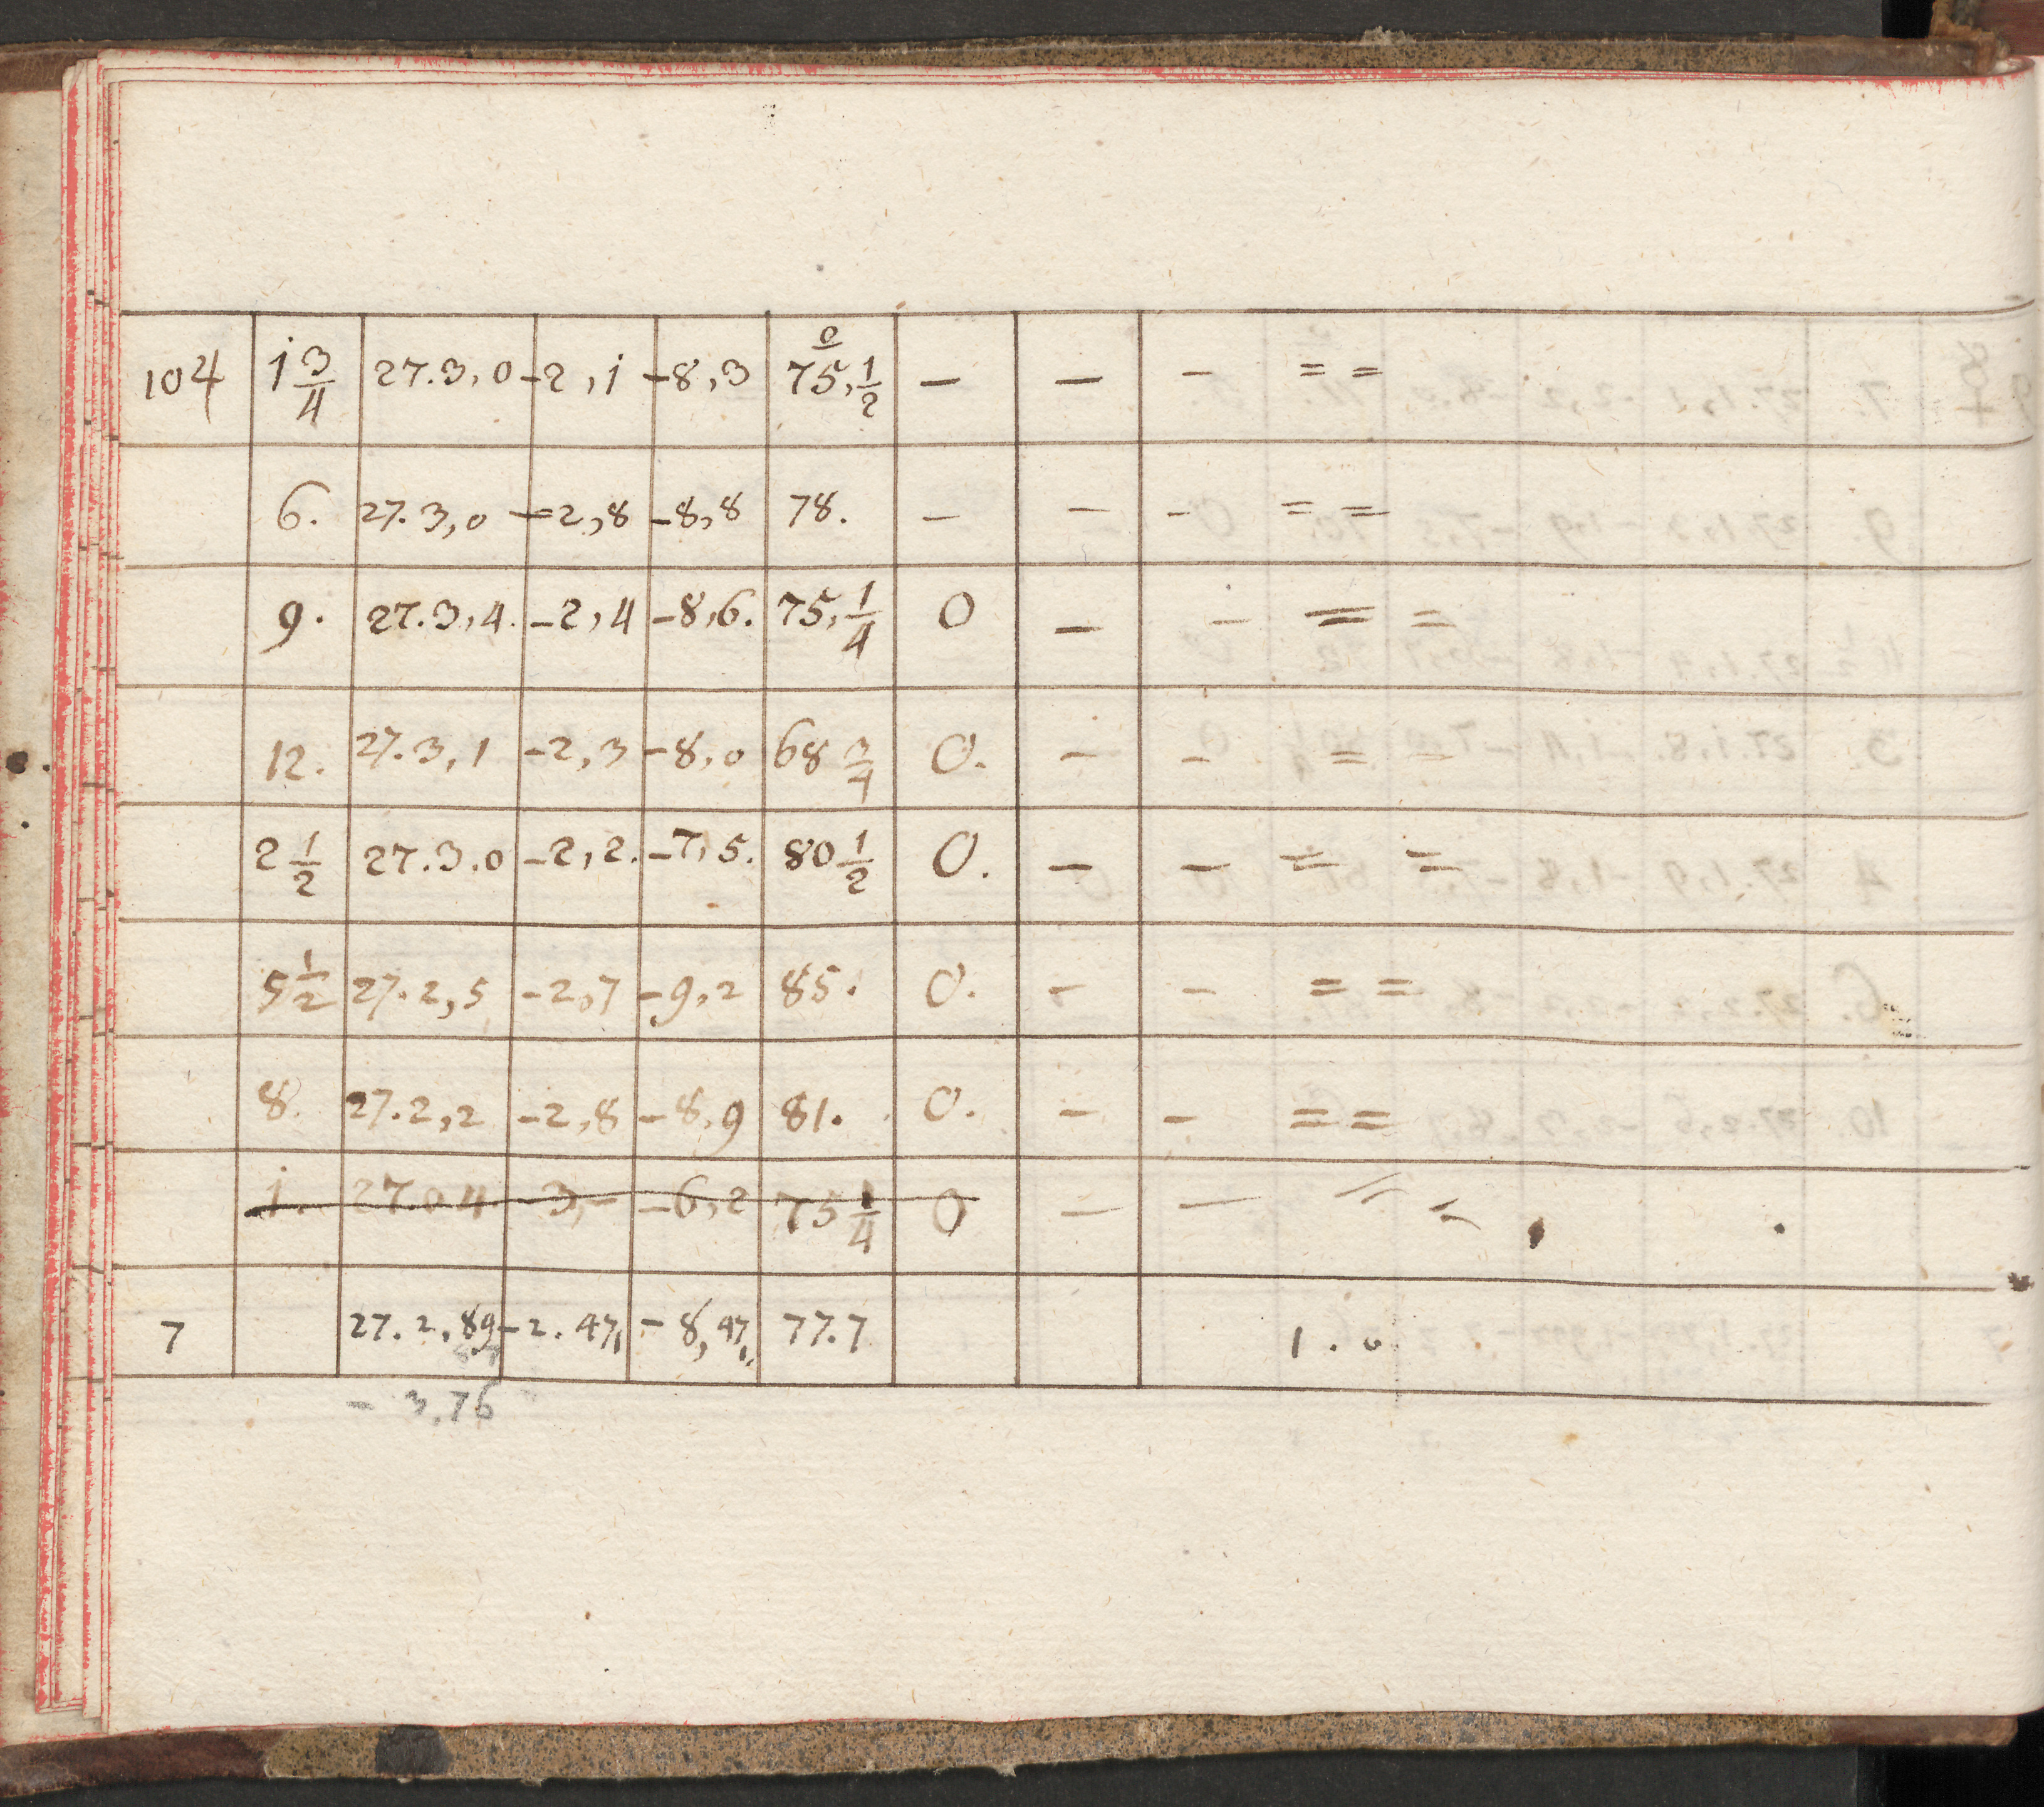 104 1 3/4 27.3,0 -2,1 -8,3 75,1/2 — — - = =
6. 27.3,0 -2,8 -8,8 78. — - - = =
9. 27.3,4. -2,4 -8,6. 75,1/4 0 — - = =
12. 27.3,1 -2,3 -8,0 68 3/4 0. - - = -
2 1/2 27.3.0 -2,2. -7,5. 80 1/2 0. - - = =
5 1/2 27.2,5 -2,7 -9,2 85. 0. - - = =
8. 27.2,2 -2,8 -8,9 81. 0. - - = =
1. 27.0 4 -3,- -6,2 75 1/4 0 — — = =
7 27.2,89 -2.47, -8,47, 77.7 1.0
- 3,76